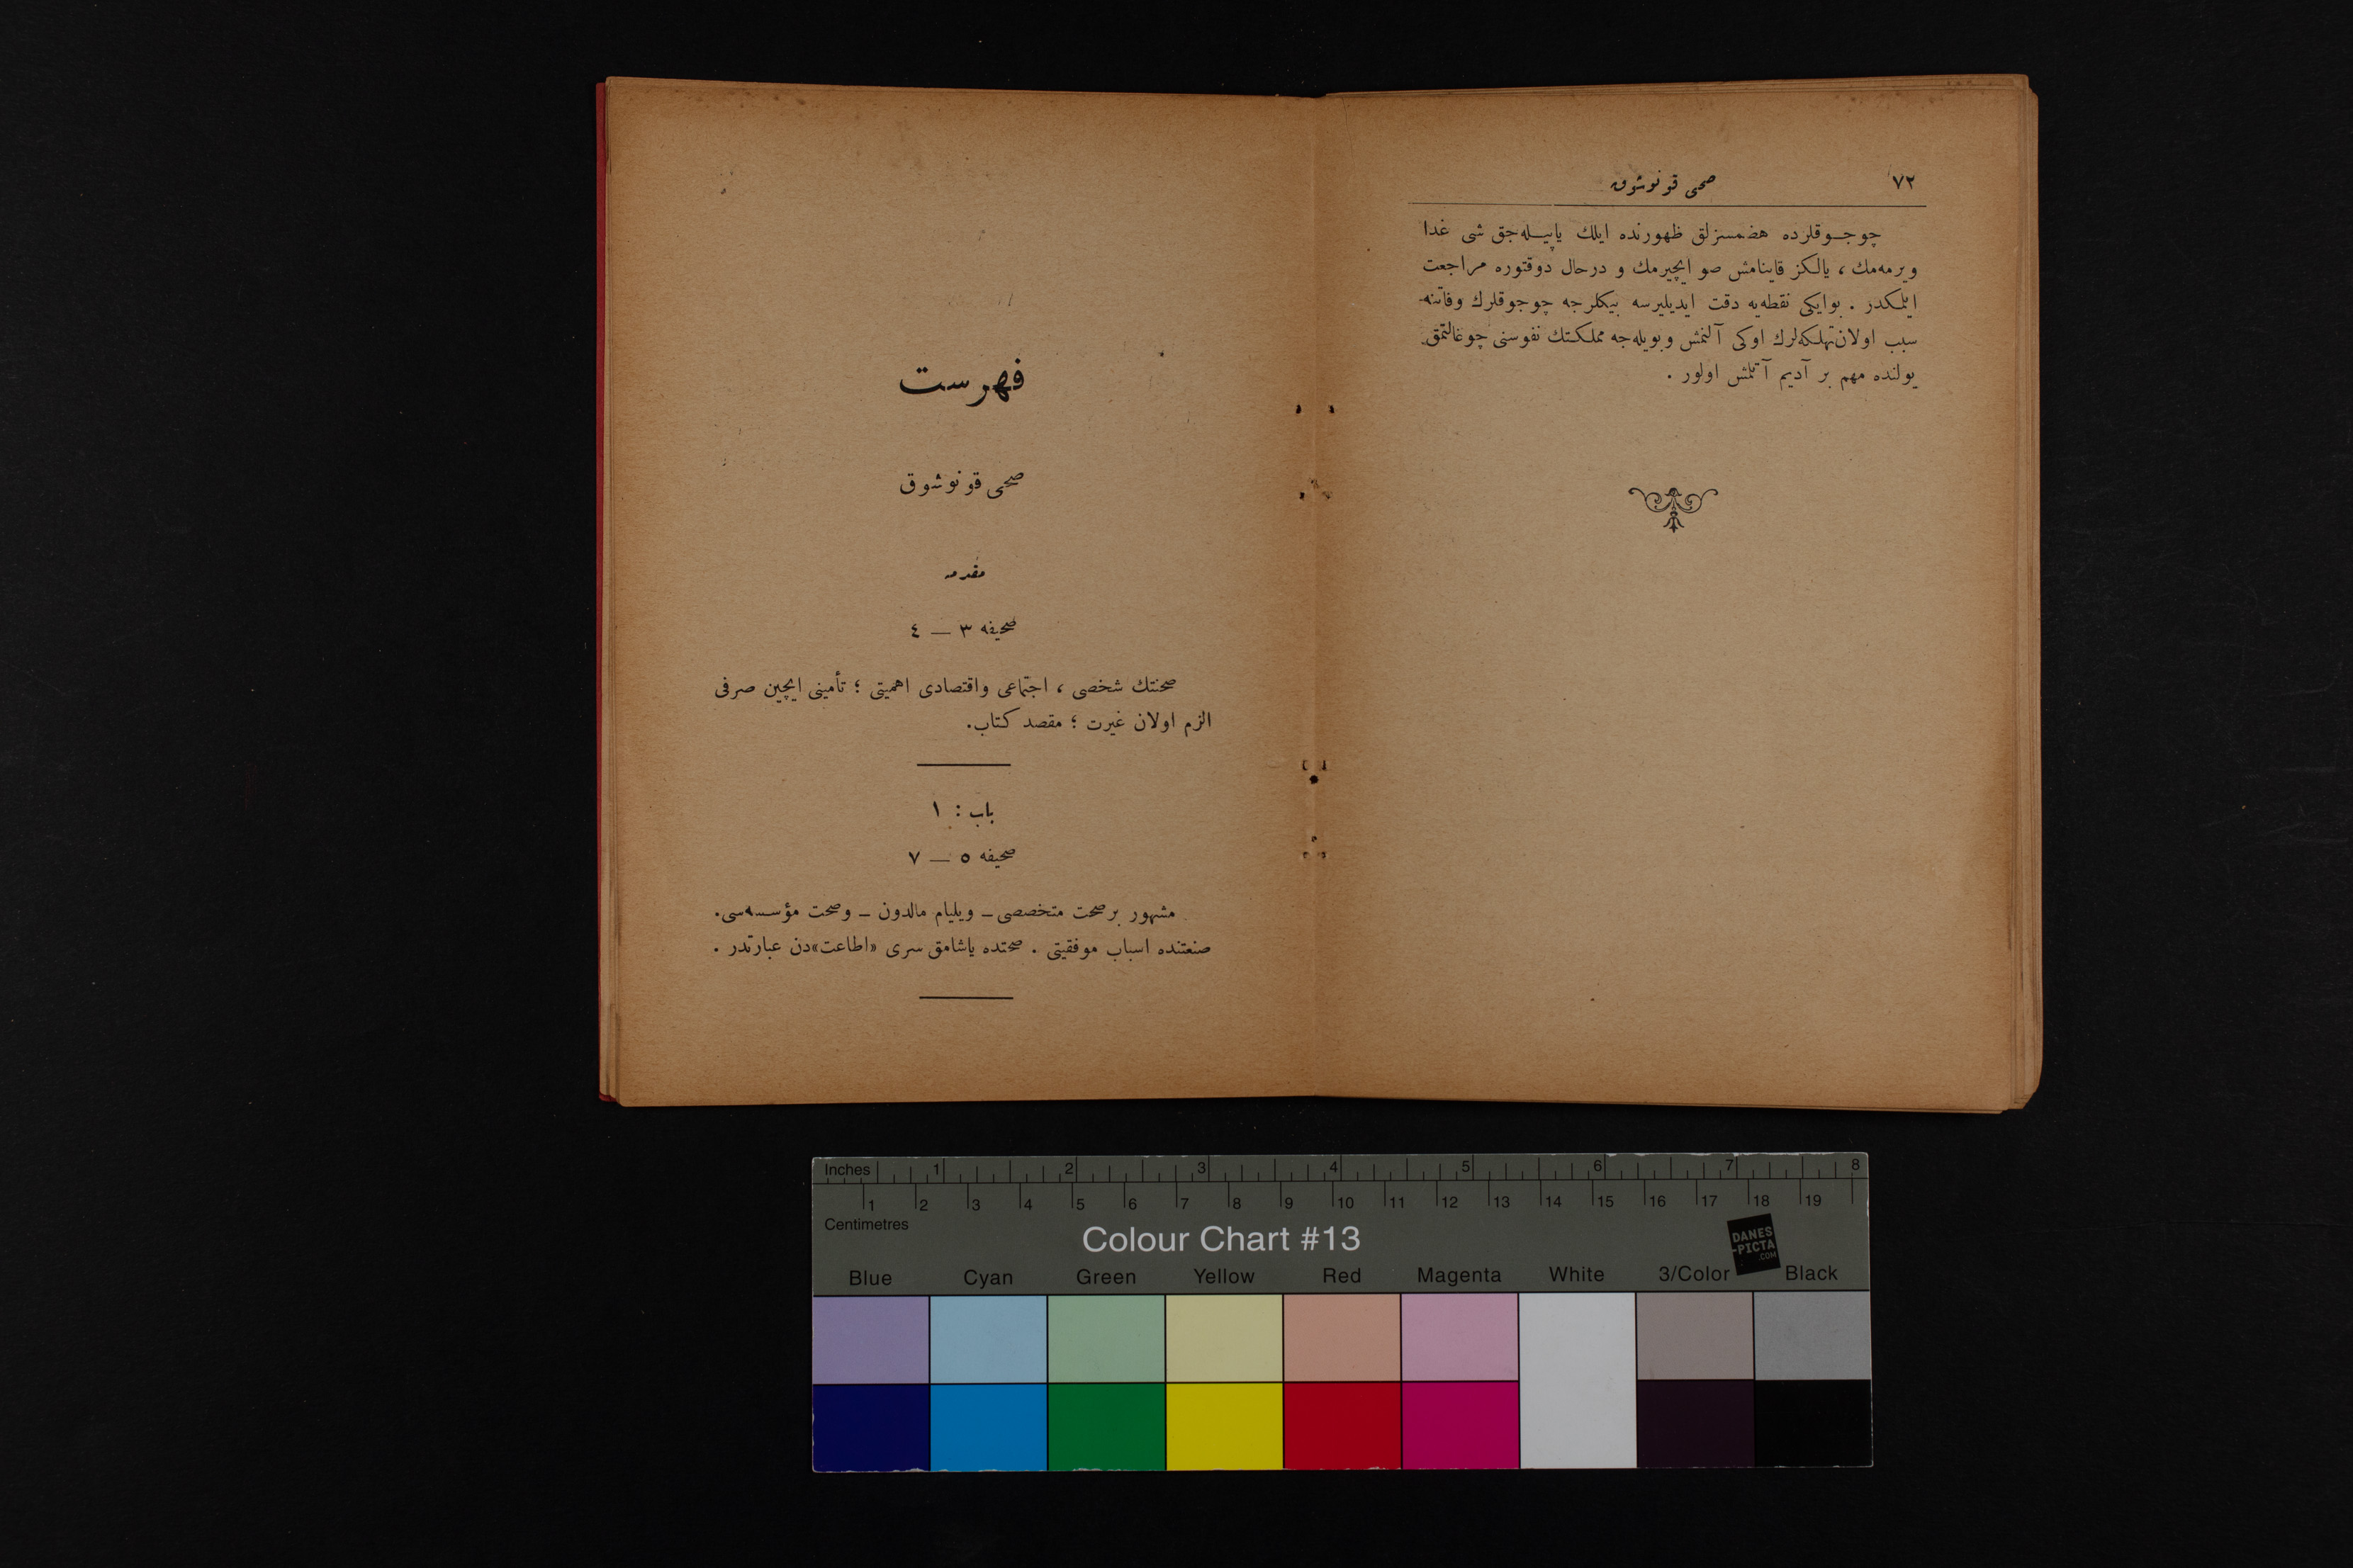 ٧٢
صحی قونوشوق
چوجوقلرده هضمسزلق ظهورنده ایلك یاپیله‌جق شی غدا
ویرمه‌مك ، یالكز قاینامش صو ایچیرمك و درحال دوقتوره مراجعت
ایتمكدر . بوایكی نقطه‌یه دقت ایدیلیرسه بیكلرجه چوجوقلرك وفاتنه
سبب اولان تهلكه‌لرك اوكی آلنمش وبویله‌جه مملكتك نفوسنی چوغالتمق
یولنده مهم بر آدیم آتلمش اولور .
فهرست
صحی قونوشوق
مقدمه
صحیفه ٣ — ٤
صحنتك شخصی ، اجتماعی واقتصادی اهمیتی ؛ تأمینی ایچین صرفی
الزم اولان غیرت ؛ مقصد كتاب.
باب : ١
صحیفه ٥ — ٧
مشهور برصحت متخصصی ـ ویلیام مالدون ـ وصحت مؤسسه‌سی.
صنعتنده اسباب موفقیتی . صحتده یاشامق سری «اطاعت»دن عبارتدر .
Inches 1 2 3 4 5 6 7 8
1 2 3 4 5 6 7 8 9 10 11 12 13 14 15 16 17 18 19
Centimetres
Colour Chart #13
DANES
-PICTA
.COM
Blue Cyan Green Yellow Red Magenta White 3/Color Black